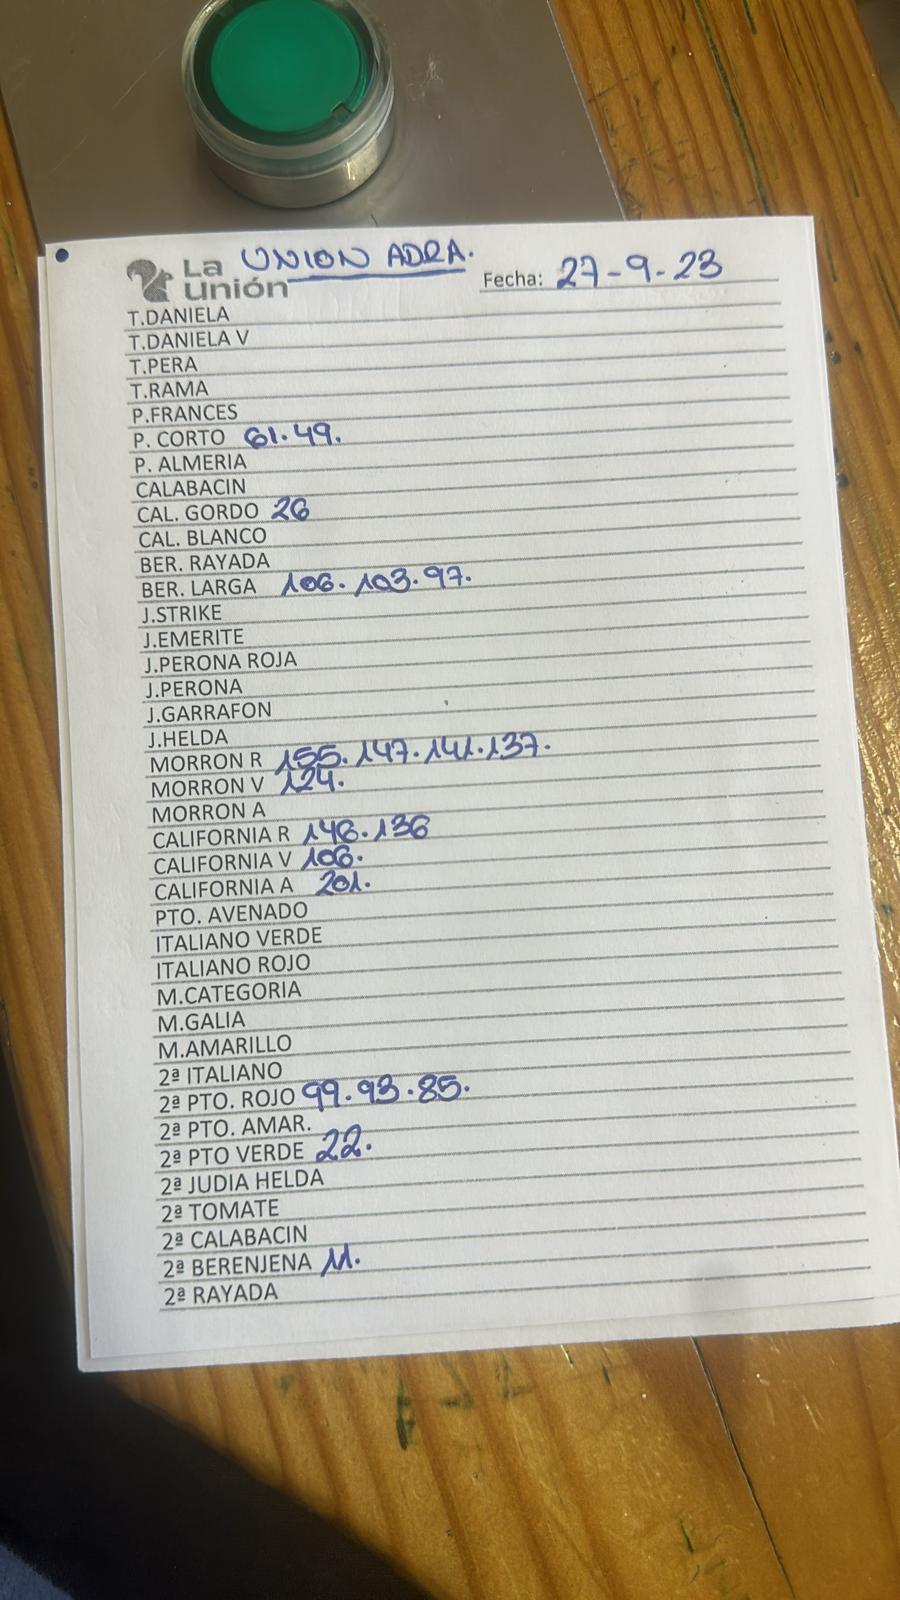 La Unión UNION ADRA. Fecha: 27-9-23
T.DANIELA
T.DANIELA V
T.PERA
T.RAMA
P.FRANCES
P. CORTO 61.49.
P. ALMERIA
CALABACIN
CAL. GORDO 26
CAL. BLANCO
BER. RAYADA
BER. LARGA 106. 103. 97.
J.STRIKE
J.EMERITE
J.PERONA ROJA
J.PERONA
J.GARRAFON
J.HELDA
MORRON R 155. 147. 141. 137.
MORRON V 124.
MORRON A
CALIFORNIA R 146. 136
CALIFORNIA V 106.
CALIFORNIA A 201.
PTO. AVENADO
ITALIANO VERDE
ITALIANO ROJO
M.CATEGORIA
M.GALIA
M.AMARILLO
2ª ITALIANO
2ª PTO. ROJO 99. 93. 85.
2ª PTO. AMAR.
2ª PTO VERDE 22.
2ª JUDIA HELDA
2ª TOMATE
2ª CALABACIN
2ª BERENJENA 11.
2ª RAYADA